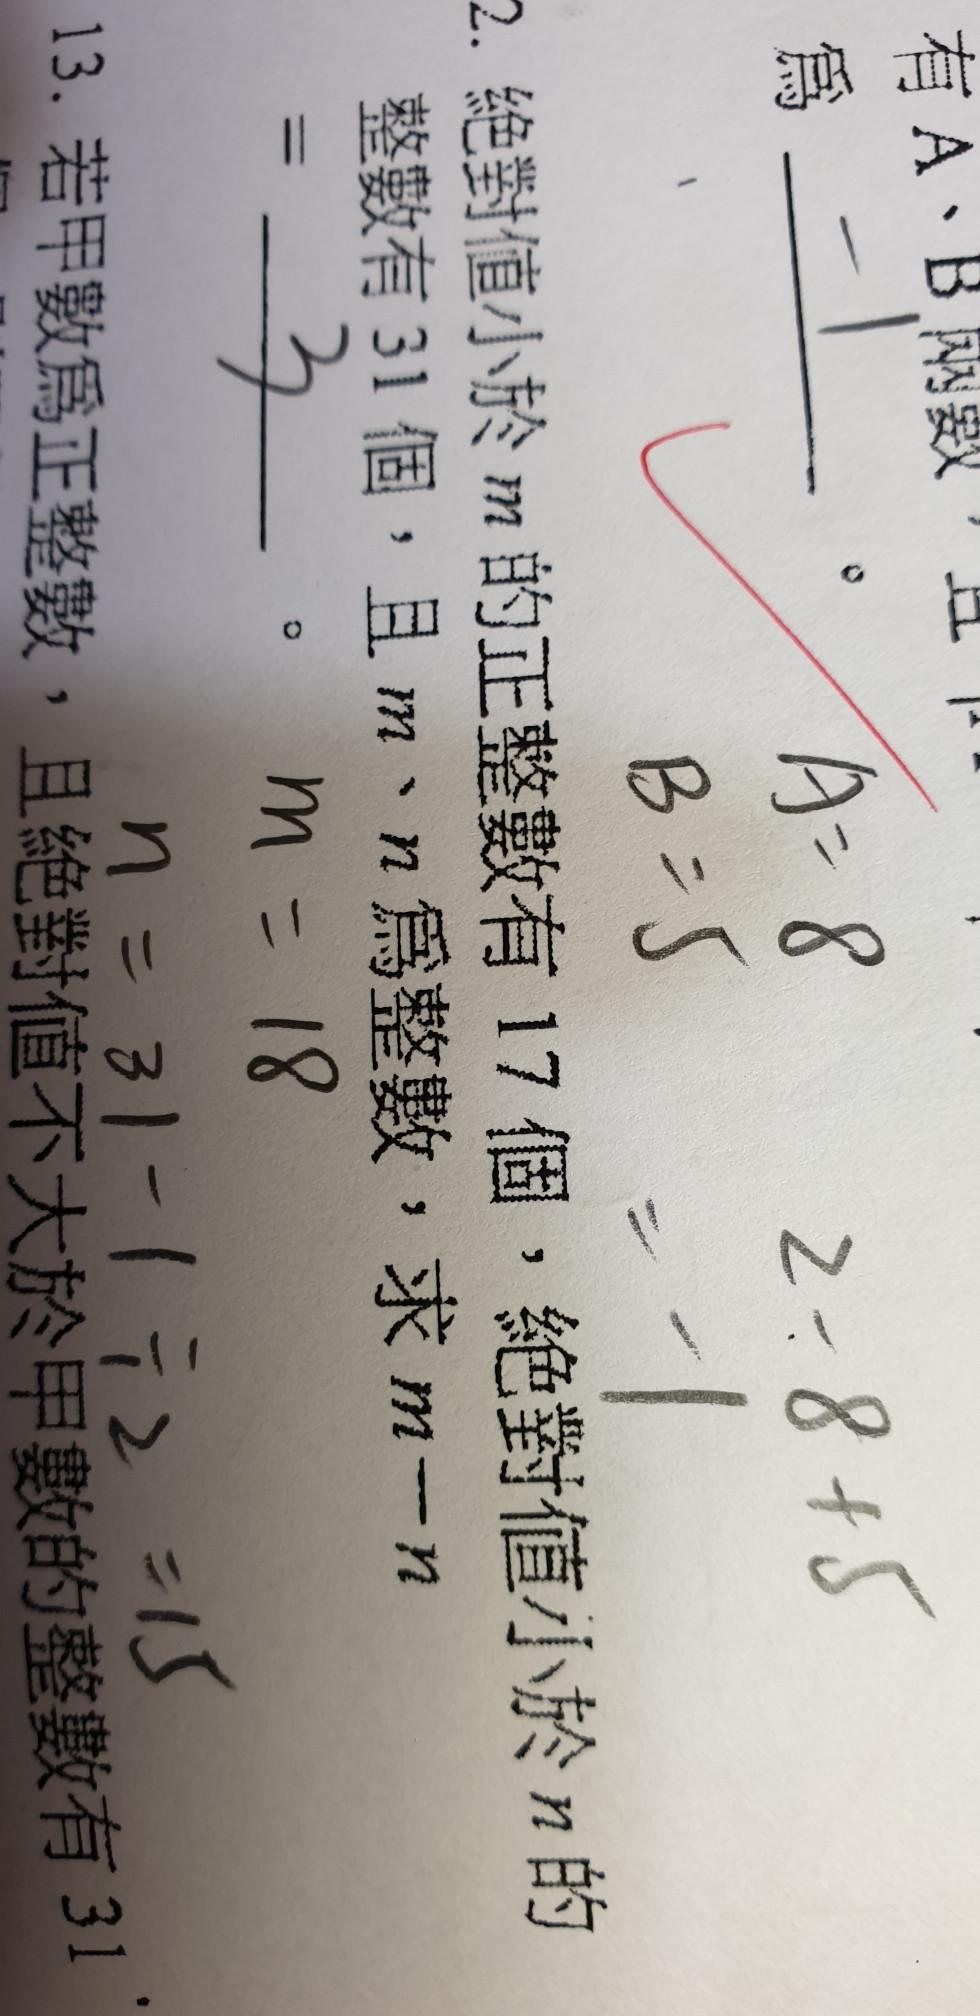 有A、B兩數,且
爲 -1 。
A=8 2-8+5
B=5 =-1
2. 絕對值小於 m 的正整數有 17 個,絕對值小於 n 的
整數有 31 個,且 m、n 爲整數,求 m-n
= 3 。
m=18
n=31-1÷2=15
13. 若甲數爲正整數,且絕對值不大於甲數的整數有 31